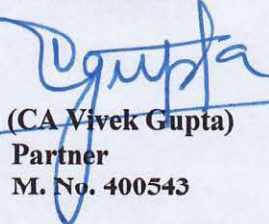 Vgupta
(CA Vivek Gupta)
Partner
M. No. 400543